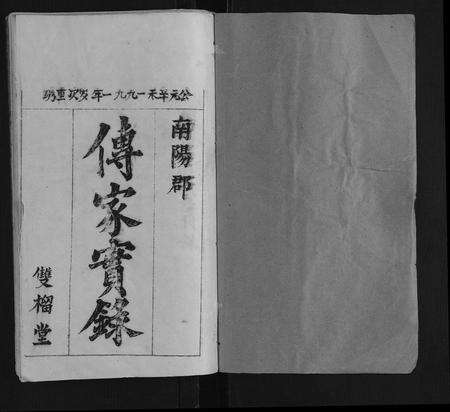 公元辛未一九九一年次重修
南陽郡
傳家實錄
雙榴堂